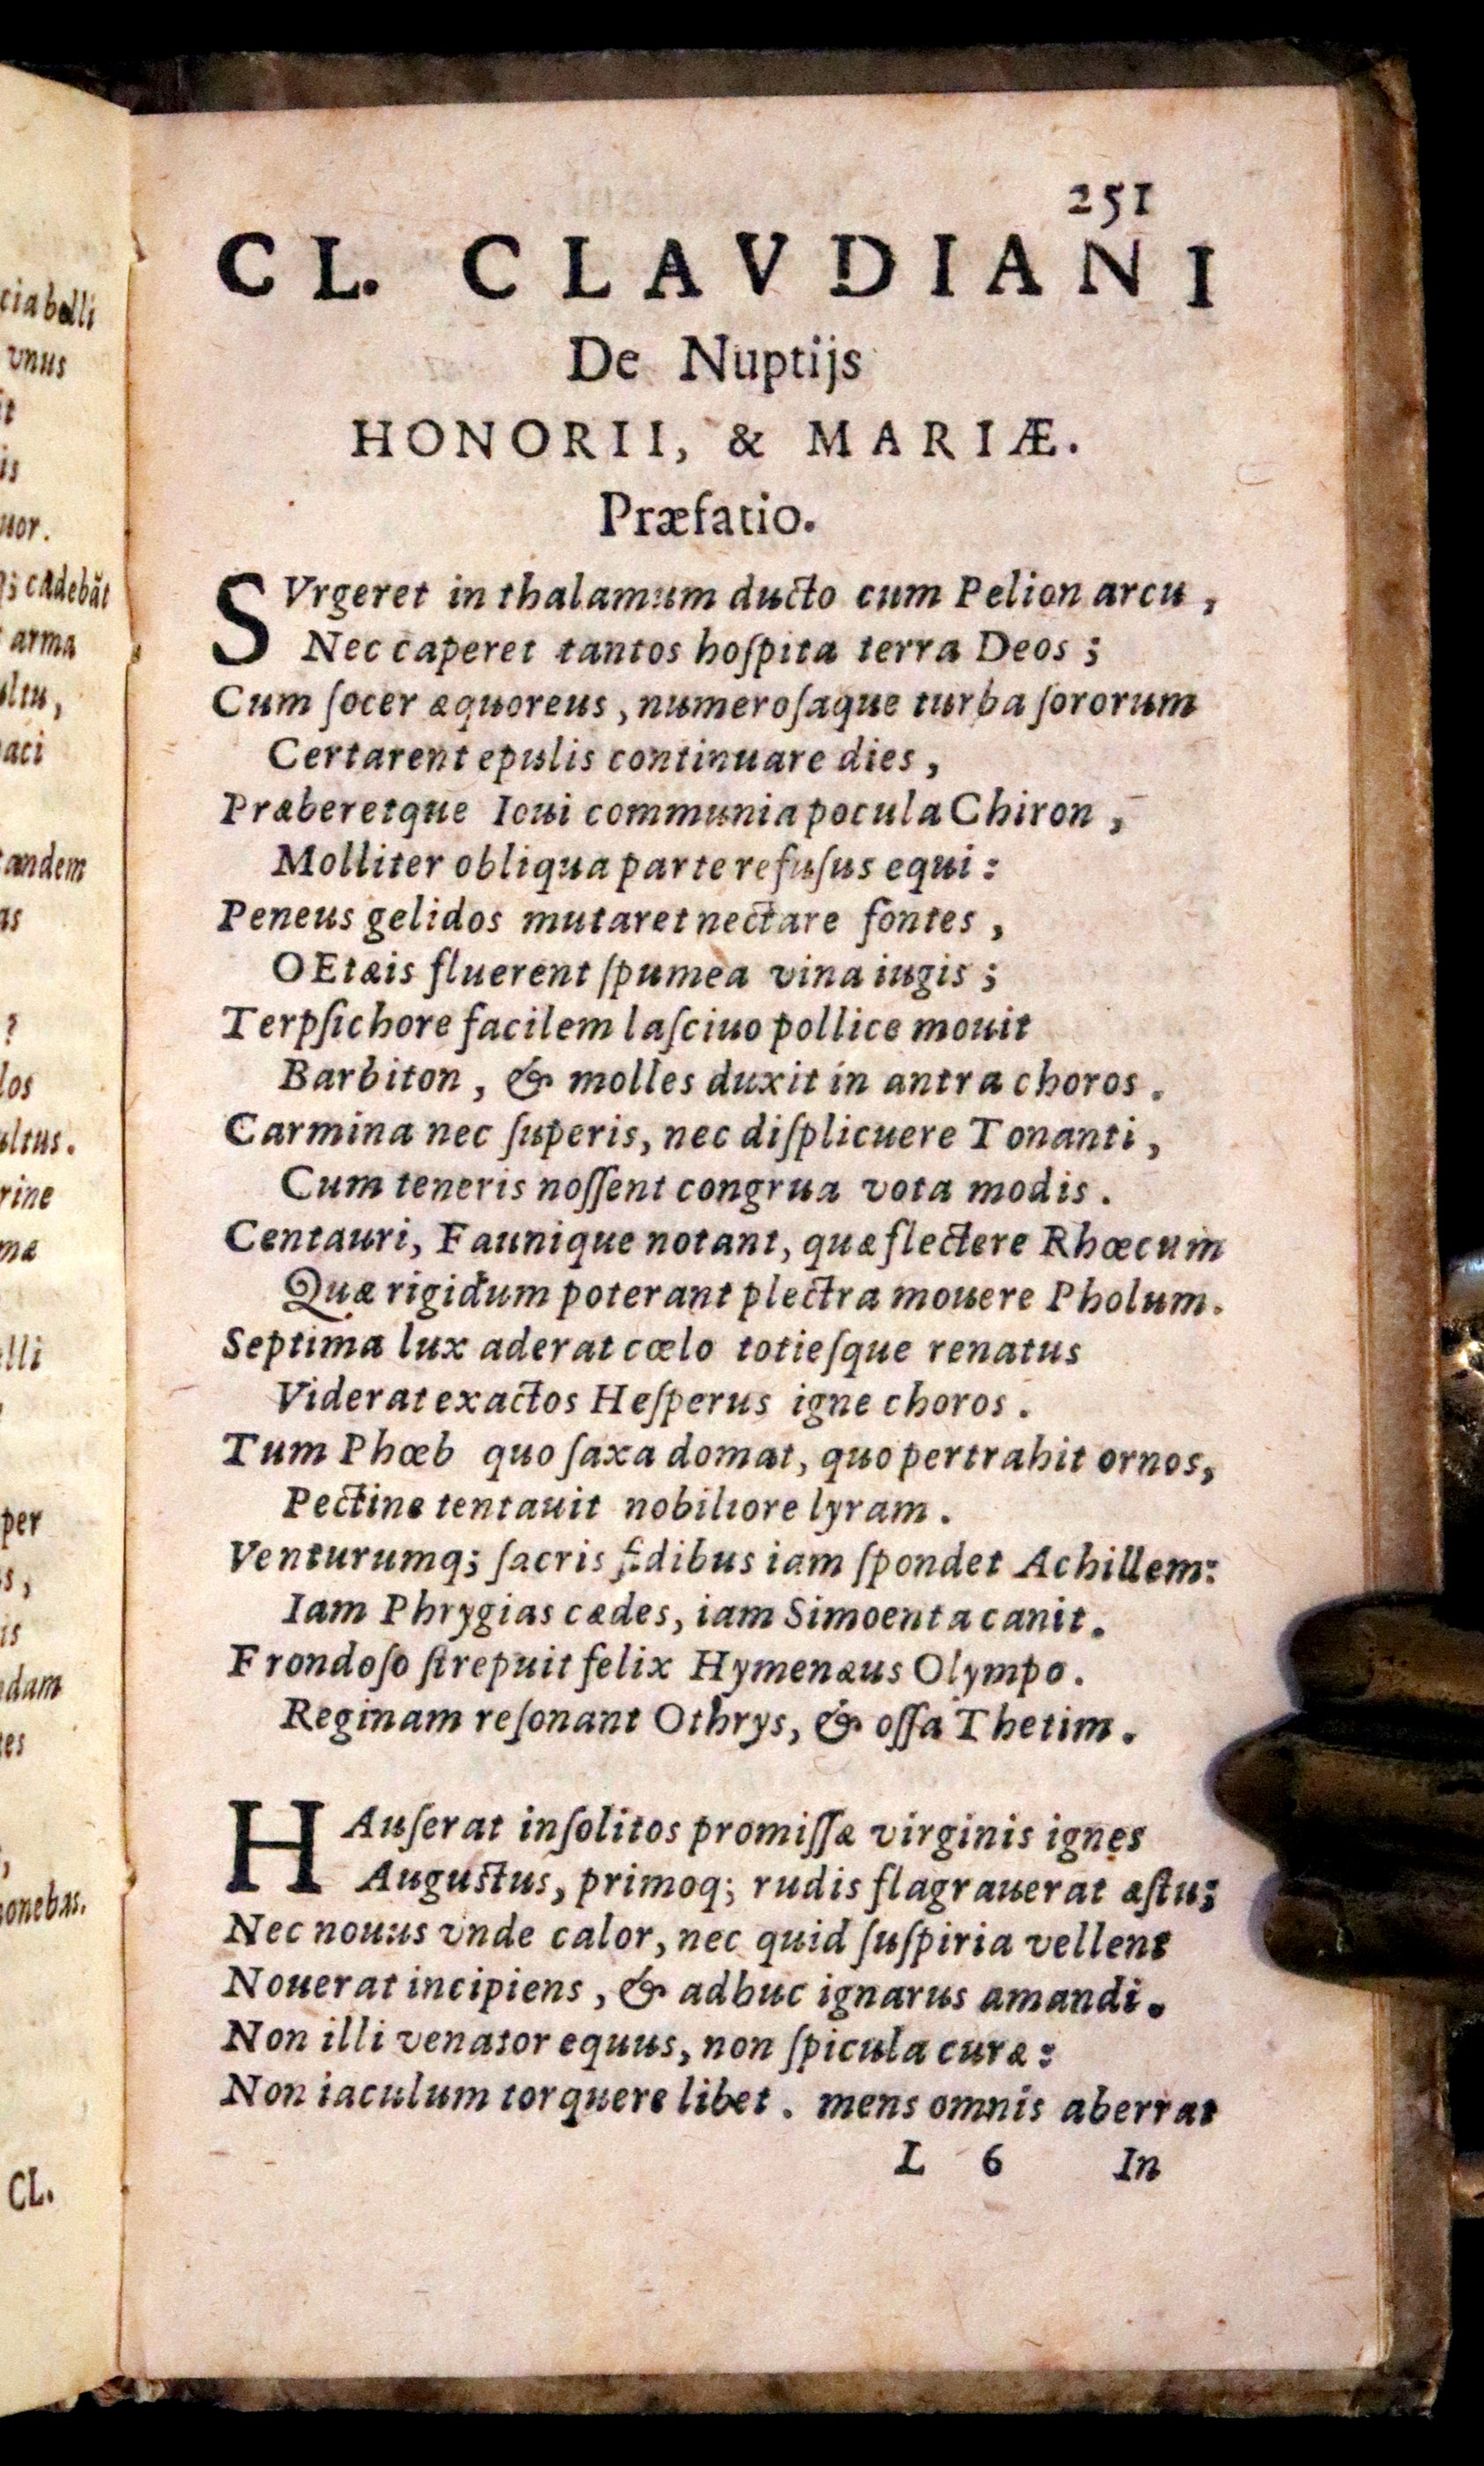 ciabelli
vnus
it
is
uor.
q; cadebāt
arma
ultu,
aci
tandem
as
?
los
ultus.
rine
mæ
elli
per
s,
is
ndam
tes
,
nonebas.
CL.
251
CL. CLAVDIANI
De Nuptijs
HONORII, & MARIÆ.
Præfatio.
SVrgeret in thalamum ducto cum Pelion arcu,
Nec caperet tantos hoſpita terra Deos;
Cum ſocer æquoreus, numeroſaque turba ſororum
Certarent epulis continuare dies,
Præberetque Ioui communia pocula Chiron,
Molliter obliqua parte refuſus equi:
Peneus gelidos mutaret nectare fontes,
OEtæis fluerent ſpumea vina iugis;
Terpſichore facilem laſciuo pollice mouit
Barbiton, & molles duxit in antra choros.
Carmina nec ſuperis, nec diſplicuere Tonanti,
Cum teneris noſſent congrua vota modis.
Centauri, Faunique notant, quæ flectere Rhœcum
Quæ rigidum poterant plectra mouere Pholum.
Septima lux aderat cœlo totieſque renatus
Viderat exactos Heſperus igne choros.
Tum Phœb quo ſaxa domat, quo pertrahit ornos,
Pectine tentauit nobiliore lyram.
Venturumq; ſacris fidibus iam ſpondet Achillem:
Iam Phrygias cædes, iam Simoenta canit.
Frondoſo ſtrepuit felix Hymenæus Olympo.
Reginam reſonant Othrys, & oſſa Thetim.
HAuſerat inſolitos promiſſæ virginis ignes
Auguſtus, primoq; rudis flagrauerat æſtu;
Nec nouus vnde calor, nec quid ſuſpiria vellent
Nouerat incipiens, & adhuc ignarus amandi.
Non illi venator equus, non ſpicula curæ:
Non iaculum torquere libet. mens omnis aberrat
L 6 In